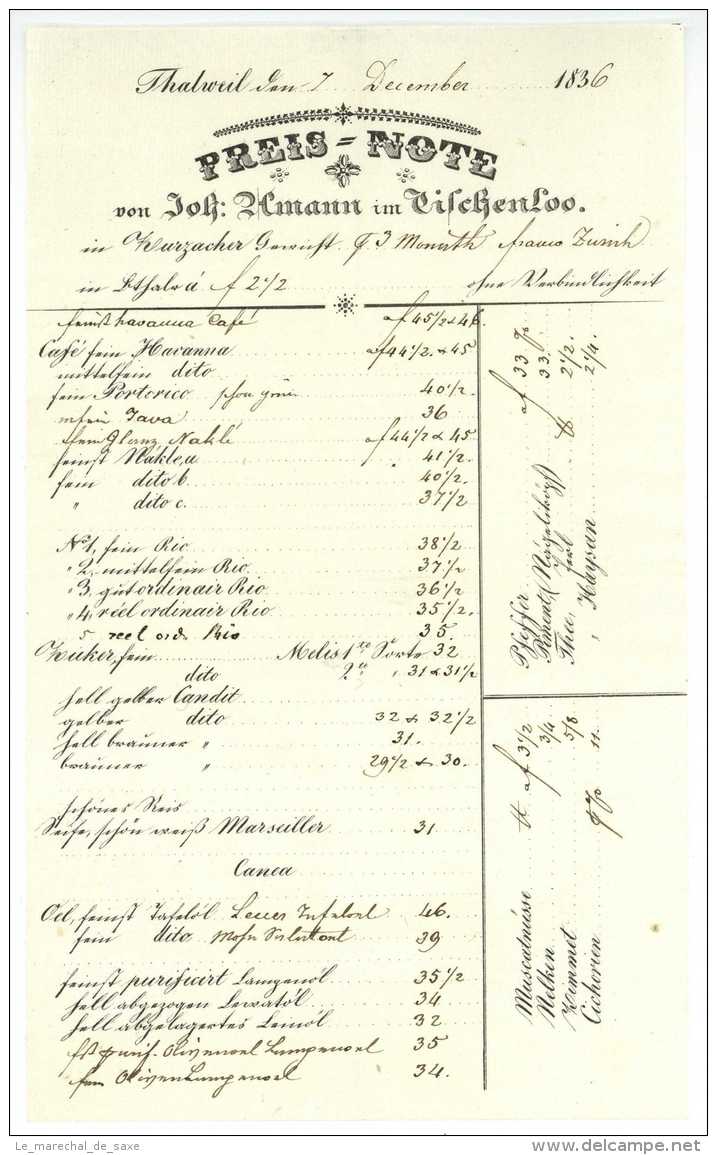 Thalweil den 7 December 1836
PREIS=NOTE
von Joh: Amann im Tischenloo.
in Zurzacher Gewicht, 3 Monath franco Zürich
in Bthalr à f 2 1/2 ohne Verbindlichkeit
feinst havanna Café af 45 1/2 & 46.
Café fein Havanna af 44 1/2. & 45
mittelfein dito
fein Portorico schön grün 40 1/2.
mfein Java 36
ffein Glanz Naklé af 44 1/2 & 45
feinst Näkle, a 41 1/2.
fein dito b 40 1/2.
" dito c. 37 1/2
No 1, fein Rio 38 1/2
" 2, mittelfein Rio 37 1/2
" 3, gut ordinair Rio 36 1/2
" 4, réel ordinair Rio 35 1/2.
5 reel ord. Rio 35.
Zucker, fein Melis 1te Sorte 32
dito 2te " 31 & 31 1/2
hell gelber Candit
gelber dito 32 & 32 1/2
hell brauner " 31.
brauner " 29 1/2 & 30.
schönes Reis
Seife, schön weiß Marseiller 31
Canea
Oel, feinst Tafelöl 46.
fein dito 39
feinst purificirt Lampenöl 35 1/2
hell abgezogen Lewatöl 34
hell abgelagertes Leinöl 32
fst purif. Olivenoel Lampenoel 35
fein OlivenLampenoel 34.
Pfeffer af 33 %
Piment, (Nägeliköpf) 33.
Thee, perl 2 1/2.
" Haysan 2 1/4.
Muscatnüsse af 3 1/2
Nelken 3/4
Zimmet 5/8
Cichorien % 11.
Le_marechal_de_saxe
delcampe.net